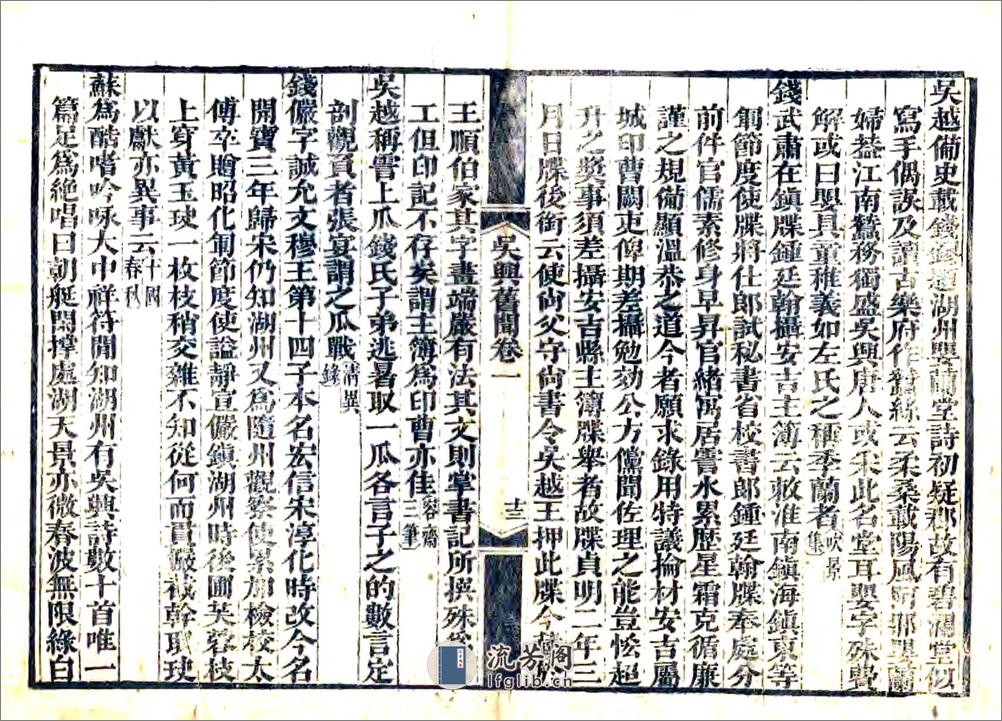 吳越備史載錢鏐遊湖州㜑蘭堂詩初疑郡故有碧瀾堂似
寫手偶誤及讀古樂府作蠶絲云柔桑載陽風㜑蘭
婦葢江南蠶務獨盛吳興唐人或采此名堂耳㜑字殊費
解或曰㜑具童稚義如左氏之稱季蘭者
錢武肅在鎮牒鍾廷翰攝安吉主簿云敕淮南鎮海鎮東等
軍節度使牒將仕郎試秘書省校書郎鍾廷翰牒奉處分
前件官儒素修身早昇官緒寓居霅水累歷星霜克循廉
謹之規備顯溫恭之道今者願求錄用特議掄材安吉屬
城印曹闕吏俾期差攝勉効公方儻聞佐理之能豈恡超
升之奬事須差攝安吉縣主簿牒舉者故牒貞明二年三
月日牒後銜云使尙父守尙書令吳越王押此牒今
吳興舊聞卷一 十三
王順伯家其字畫端嚴有法其文則掌書記所撰殊爲
工但印記不存矣謂主簿爲印曹亦佳容齋三筆
吳越稱霅上瓜錢氏子弟逃暑取一瓜各言子之的數言定
剖觀負者張宴謂之瓜戰清異錄
錢儼字誠允文穆王第十四子本名宏信宋淳化時改今名
開寶三年歸宋仍知湖州又爲隨州觀察使累加檢校太
傅卒贈昭化軍節度使謚靜宣儼鎮湖州時後圃芙蓉枝
上穿黃玉玦一枚枝稍交雜不知從何而貫儼截幹取玦
以獻亦異事云十國春秋
蘇爲酷嗜吟咏大中祥符間知湖州有吳興詩數十首唯一
篇足爲絶唱曰朝艇閒撑處湖天景亦微春波無限綠白
流芳阁
lfglib.cn